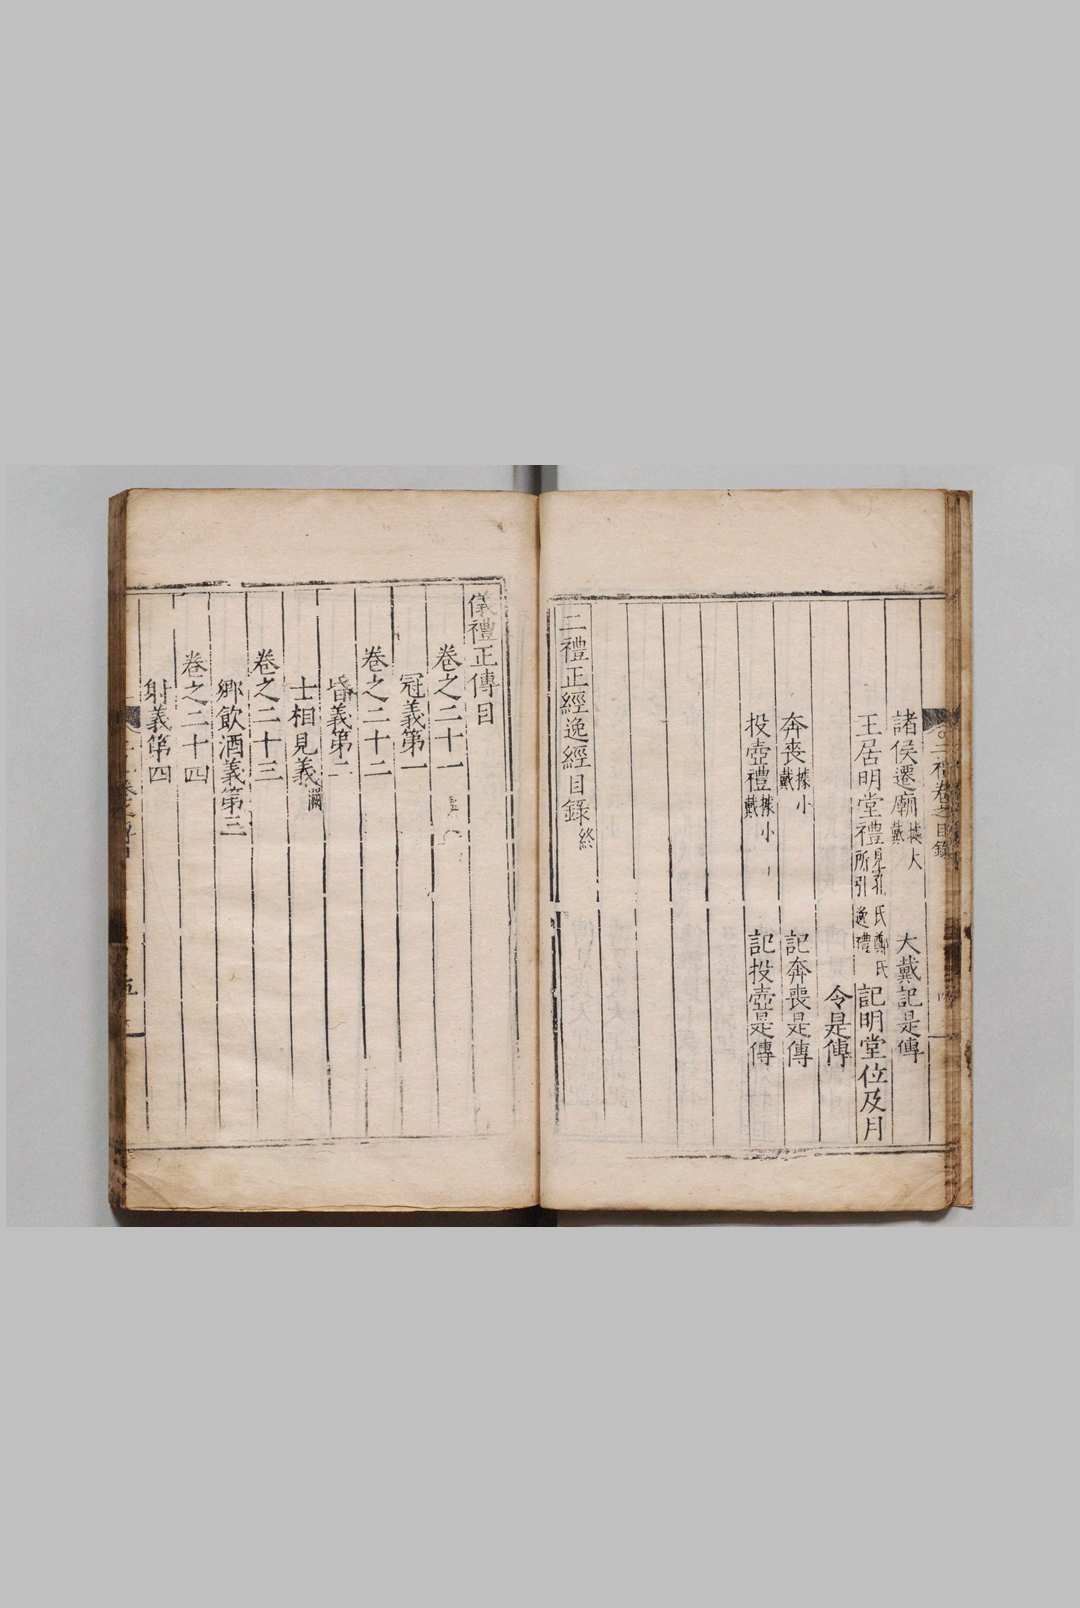 諸侯遷廟據大戴 大戴記是傳
王居明堂禮 記明堂位及月
令是傳
奔喪據小戴 記奔喪是傳
投壺禮據小戴 記投壺是傳
二禮正經逸經目錄終
儀禮正傳目
卷之二十一
冠義第一
卷之二十二
昏義第二
士相見義闕
卷之二十三
鄉飲酒義第三
卷之二十四
射義第四
五